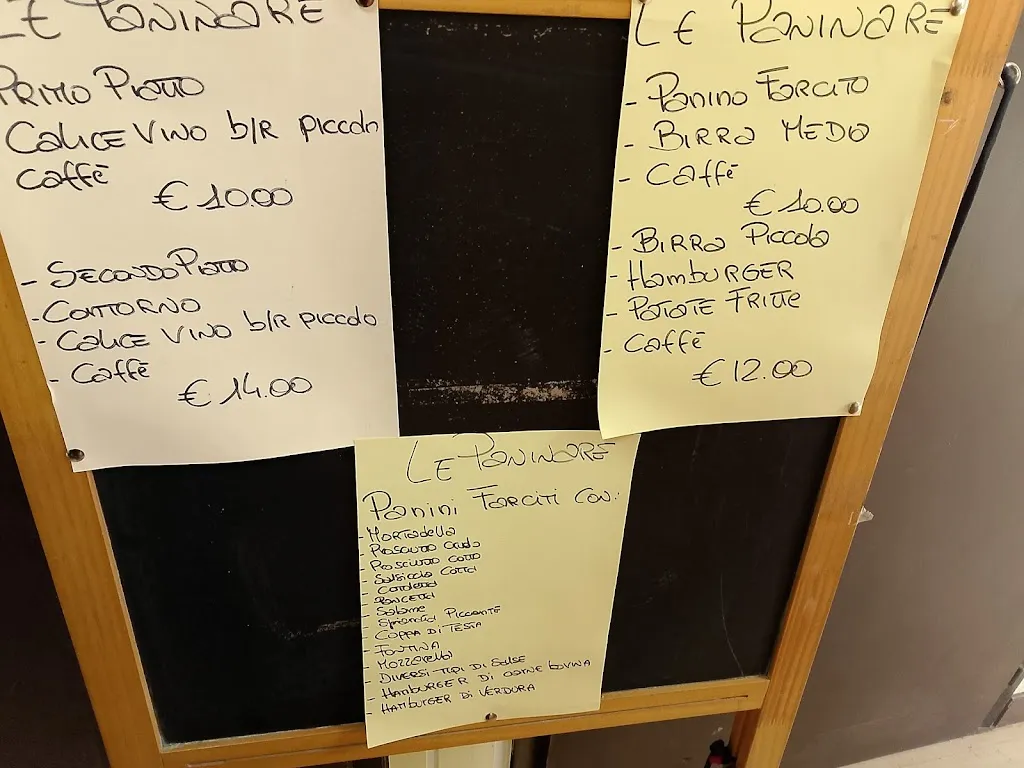 LE PANINARE
PRIMO PIATTO
CALICE VINO b/R piccolo
Caffè
€ 10.00
- SECONDO PIATTO
- CONTORNO
- CALICE VINO b/R piccolo
- Caffè
€ 14.00
LE PANINARE
- PANINO FARCITO
- BIRRA MEDIA
- Caffè
€ 10.00
- BIRRA Piccola
- HamBURGER
- PATATE FRITTE
- Caffè
€ 12.00
LE PANINARE
PANINI FARCITI CON:
- MORTADella
- PROSCIUTTO CRUDO
- PROSCIUTTO COTTO
- SALSICCIA COTTA
- PANCETTA
- SALAME
- SPIANATA PICCANTE
- COPPA DI TESTA
- FONTINA
- MOZZARella
- DIVERSI TIPI DI SALSE
- HAMBURGER DI CARNE BOVINA
- HAMBURGER DI VERDURA